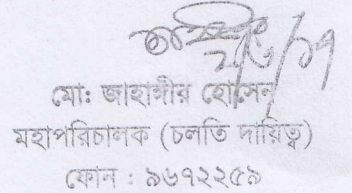 মোঃ জাহাঙ্গীর হোসেন
মহাপরিচালক (চলতি দায়িত্ব)
ফোন : ৯৬৭২২৫৯